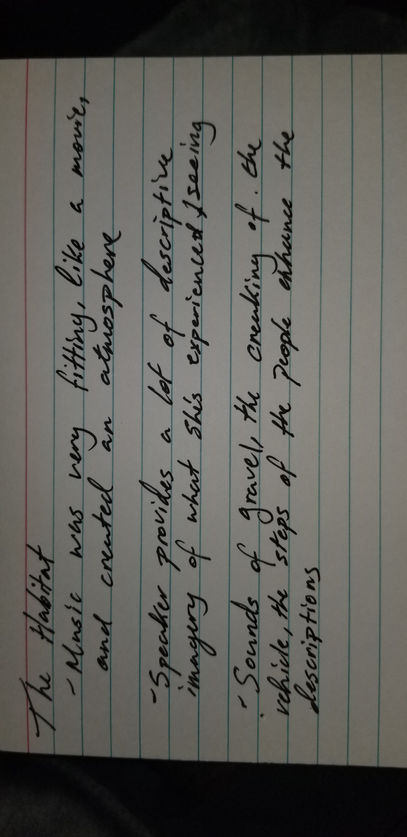 The Habitat
- Music was very fitting, like a movie,
and created an atmosphere
- Speaker provides a lot of descriptive
imagery of what she's experienced & seeing
- Sounds of gravel, the creaking of the
vehicle, the steps of the people enhance the
descriptions